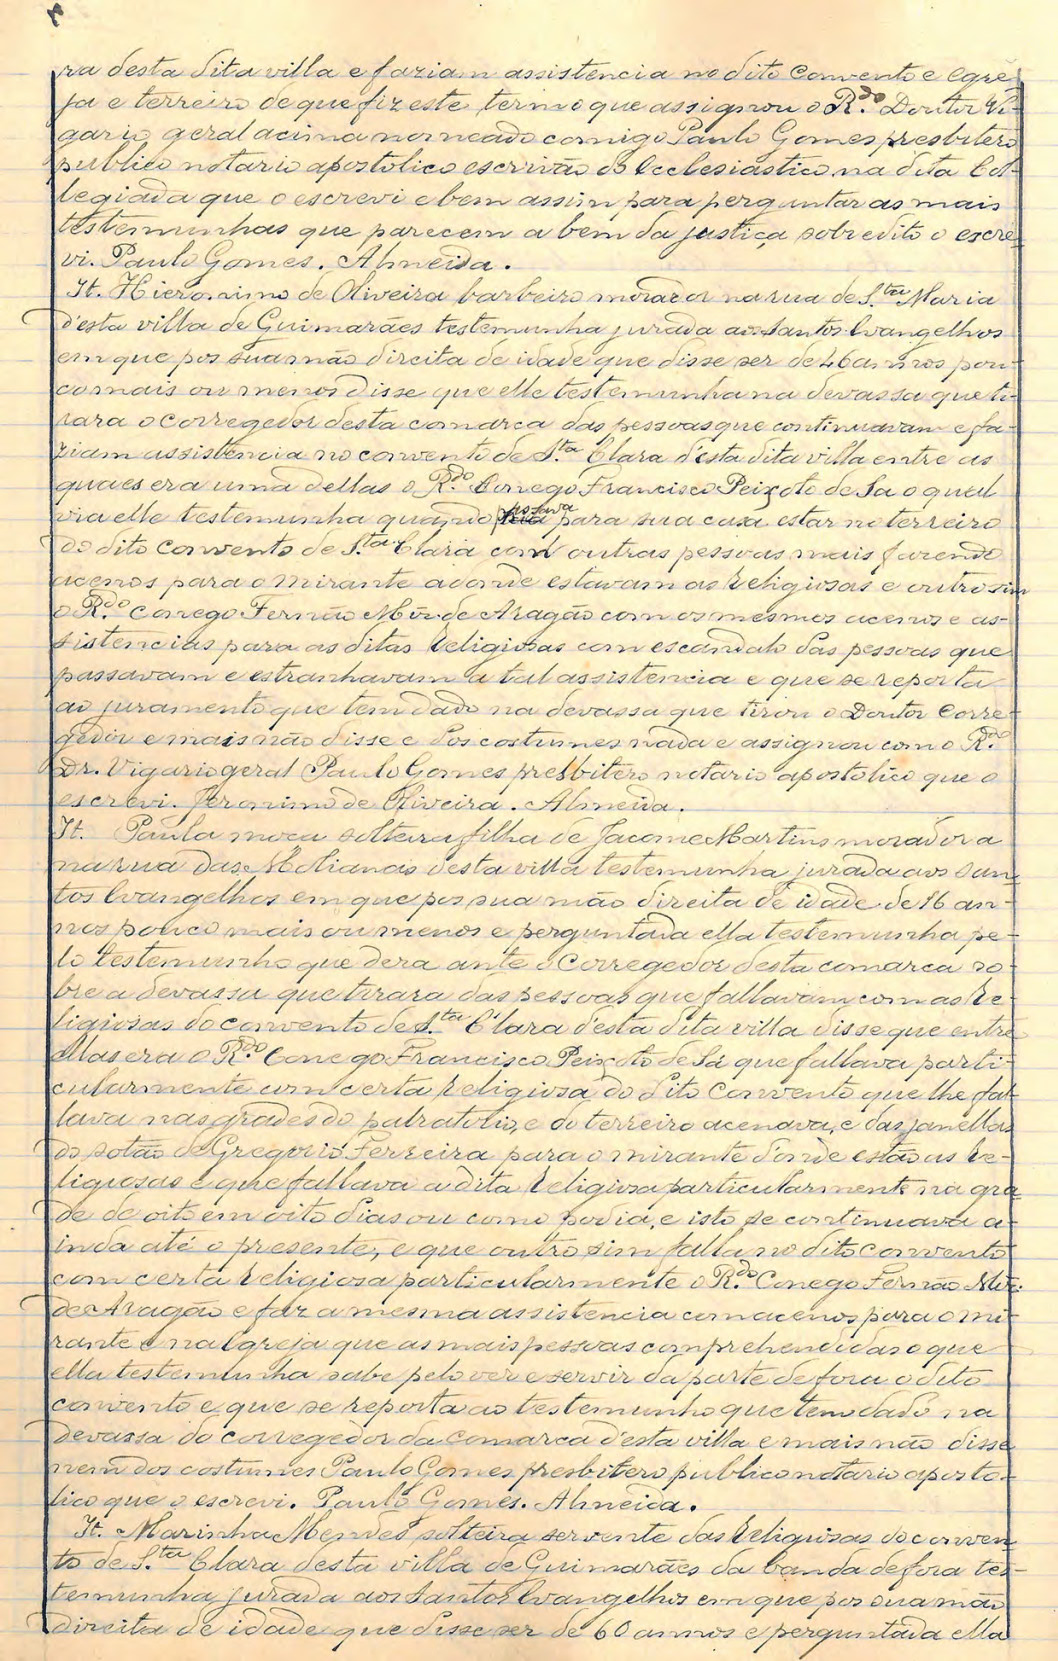 ra desta dita villa e faziam assistencia no dito convento e egre-
ja e terreiro de que fiz este termo que assignou o R.do Doutor Vi-
gario geral acima nomeado comigo Paulo Gomes presbitero
publico notario apostolico escrivão do Ecclesiastico na dita Col-
legiada que o escrevi e bem assim para perguntar as mais
testemunhas que parecem a bem da justiça sobredito o escre-
vi. Paulo Gomes. Almeida.
It. Hieronimo de Oliveira barbeiro morador na rua de S.ta Maria
d'esta villa de Guimarães testemunha jurada aos Santos Evangelhos
em que pos sua mão direita de idade que disse ser de 46 annos pou-
co mais ou menos disse que elle testemunha na devassa que ti-
rara o corregedor desta comarca das pessoas que continuavam e fa-
ziam assistencia no convento de S.ta Clara d'esta dita villa entre as
quaes era uma dellas o R.do Conego Francisco Peixoto de Sa o qual
via elle testemunha quando passava para sua casa estar no terreiro
do dito convento de S.ta Clara com outras pessoas mais fazendo
acenos para o mirante adonde estavam as Religiosas e outro sim
o R.do Conego Fernão Miz de Aragão com os mesmos acenos e as-
sistencias para as ditas Religiosas com escandalo das pessoas que
passavam e estranhavam a tal assistencia e que se reporta
ao juramento que tem dado na devassa que tirou o Doutor Corre-
gedor e mais não disse e dos costumes nada e assignou com o R.do
Dr. Vigario geral Paulo Gomes presbitero notario apostolico que o
escrevi. Jeronimo de Oliveira. Almeida.
It. Paula moca solteira filha de Jacome Martins moradora
na rua das Molianas desta villa testemunha jurada aos San-
tos Evangelhos em que pos sua mão direita de idade de 16 an-
nos pouco mais ou menos e perguntada ella testemunha pe-
lo testemunho que dera ante o Corregedor desta comarca so-
bre a devassa que tirara das pessoas que fallavam com as Re-
ligiosas do convento de S.ta Clara d'esta dita villa disse que entre
ellas era o R.do Conego Francisco Peixoto de Sá que fallava parti-
cularmente com certa Religiosa do dito Convento que lhe fal-
lava nas grades do palratorio, e do terreiro acenava, e das janellas
do sotão de Gregorio Ferreira para o mirante donde estão as Re-
ligiosas e que fallava a dita Religiosa particularmente na gra-
de de oito em oito dias ou como podia, e isto se continuava a-
inda até o presente, e que outro sim falla no dito convento
com certa Religiosa particularmente o R.do Conego Fernão Miz.
de Aragão e faz a mesma assistencia com acenos para o mi-
rante e na Egreja que as mais pessoas comprehendidas o que
ella testemunha sabe pelo ver e servir da parte de fora o dito
convento e que se reporta ao testemunho que tem dado na
devassa do corregedor da Comarca d'esta villa e mais não disse
nem dos costumes Paulo Gomes presbitero publico notario aposto-
lico que o escrevi. Paulo Gomes. Almeida.
It. Marinha Mendes solteira servente das Religiosas do conven-
to de S.ta Clara desta villa de Guimarães da banda de fora tes-
temunha jurada aos Santos Evangelhos em que pos sua mão
direita de idade que disse ser de 60 annos e perguntada ella